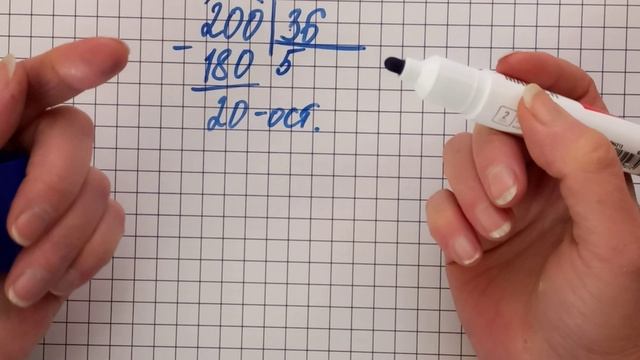 200 | 36
- 180 5
20 - ост.
2